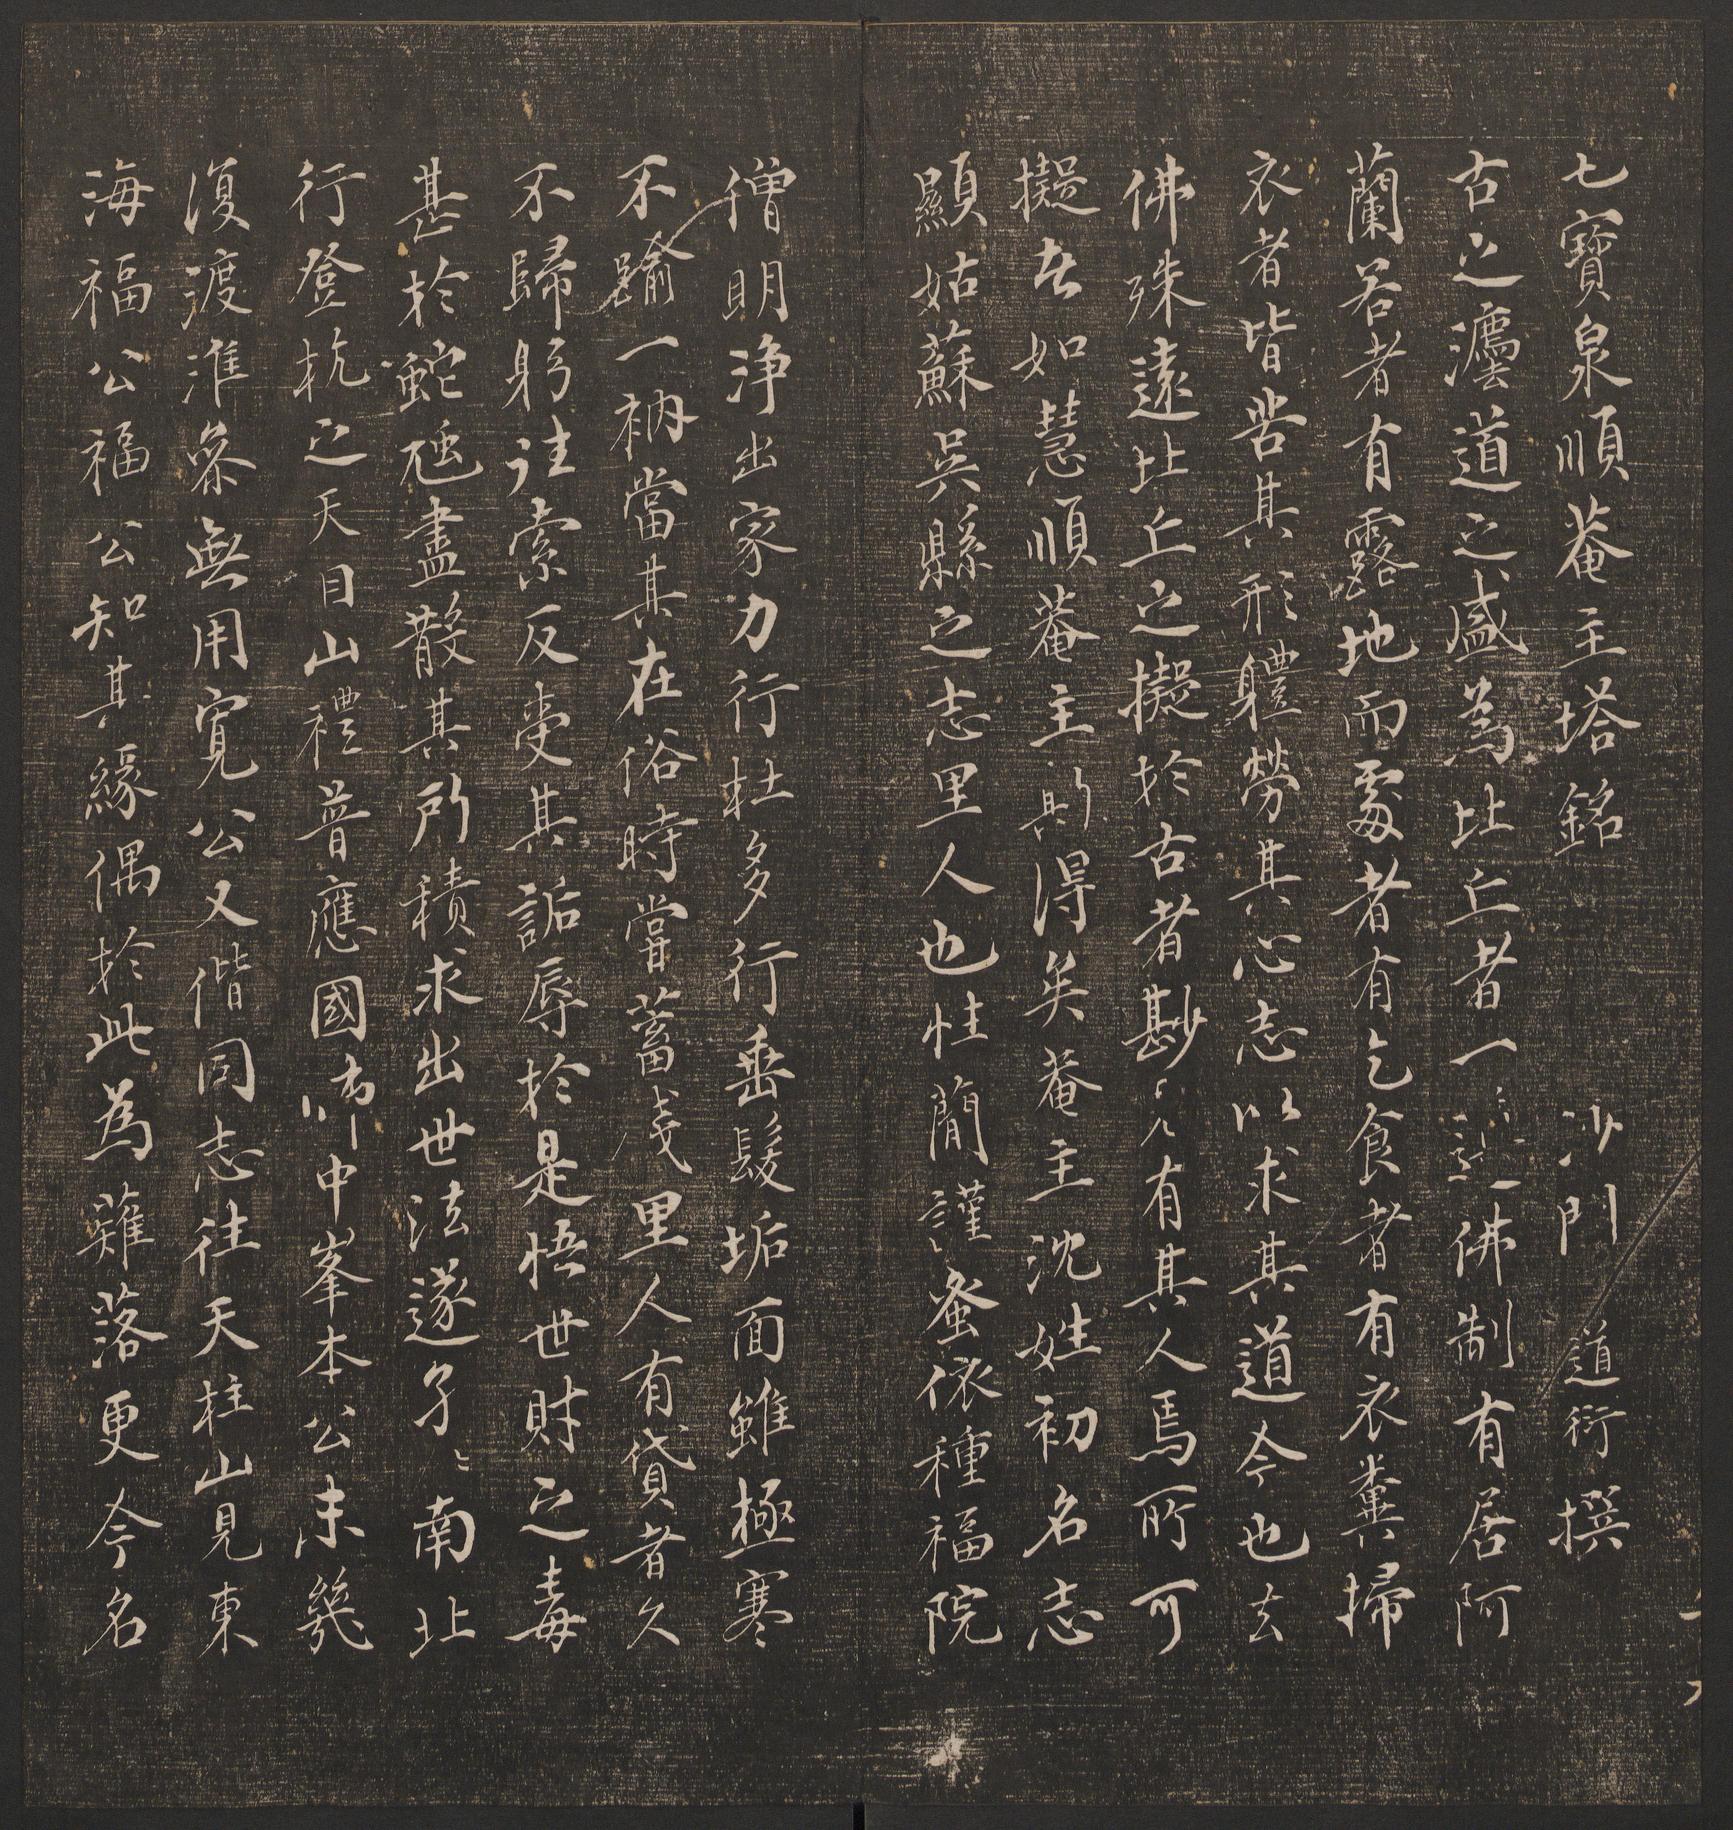 七寶泉順菴主塔銘 沙門 道衍 撰
古之灋道之盛為比丘者一遵佛制有居阿
蘭若者有露地而處者有乞食者有衣糞掃
衣者皆苦其形軆勞其心志以求其道今也去
佛殊遠比丘之擬於古者尠有其人焉所可
擬者如慧順菴主則得矣菴主沈姓初名志
顯姑蘇吳縣之志里人也性簡謹蚤依種福院
僧明淨出家力行杜多行垂髮垢面雖極寒
不踰一衲當其在俗時嘗蓄錢里人有貸者久
不歸躬往索反受其詬辱於是悟世財之毒
甚於蛇虺盡散其所積求出世法遂孑〻南北
行登杭之天目山禮普應國師中峯本公未幾
復渡淮參無用寬公又偕同志往天柱山見東
海福公福公知其緣偶於此為薙落更今名